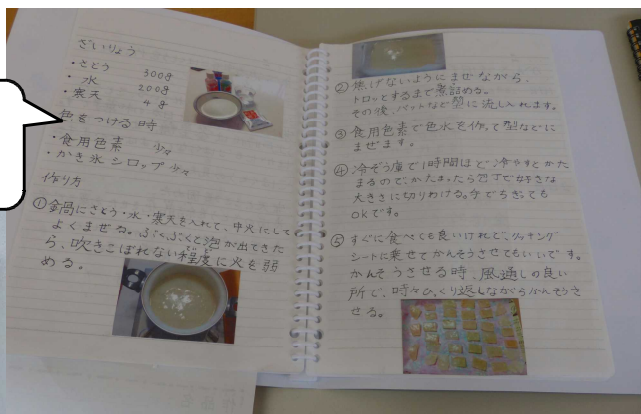 ざいりょう
・さとう 300g
・水 200g
・寒天 4g
色をつける時
・食用色素 少々
・かき氷シロップ 少々
作り方
①鍋にさとう・水・寒天を入れて、中火にして
よくまぜる。ぶくぶくと泡が出てきた
ら、吹きこぼれない程度に火を弱
める。
②焦げないようにまぜながら、
トロッとするまで煮詰める。
その後、バットなど型に流し入れます。
③食用色素で色水を作って型などに
まぜます。
④冷ぞう庫で1時間ほど冷やすとかた
まるので、かたまったら包丁で好きな
大きさに切りわける。手でちぎっても
OKです。
⑤すぐに食べても良いけれど、クッキング
シートに乗せてかんそうさせてもいいです。
かんそうさせる時、風通しの良い
所で、時々ひっくり返しながらかんそうさ
せる。